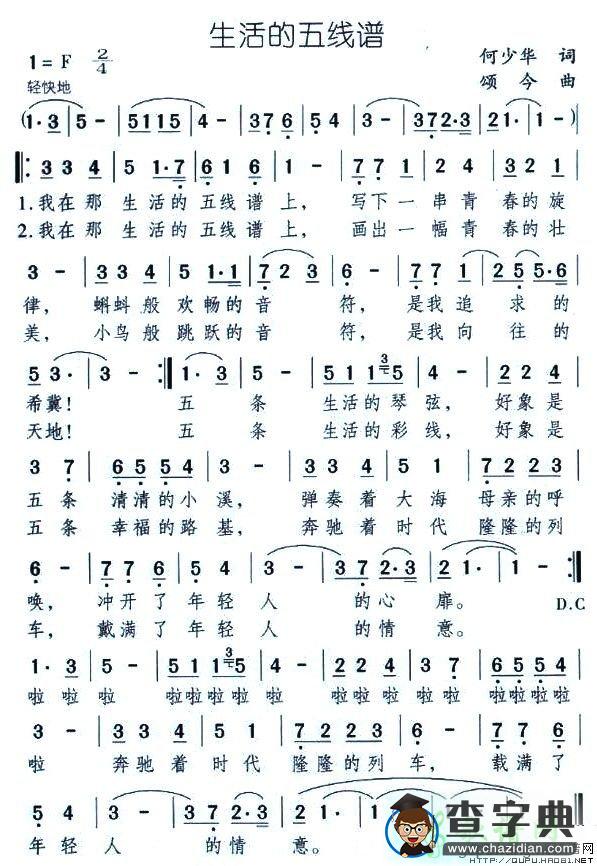 生活的五线谱
1=F 2/4
何少华 词
轻快地
颂今 曲
(1·3 | 5 - | 5115 | 4 - | 376 | 54 | 3 - | 372·3 | 21· | 1 - )
‖: 334 | 51·7 | 616 | 1 - | 771 | 24 | 321
1.我在那 生活的五线谱上, 写下一串青春的旋
2.我在那 生活的五线谱上, 画出一幅青春的壮
3 - | 334 | 51·1 | 723 | 6 - | 771 | 255·6
律, 蝌蚪般欢畅的音符, 是我追求的
美, 小鸟般跳跃的音符, 是我向往的
53· | 3 - :‖ 1·3 | 5 - | 5113 | 5 - | 224
希冀! 五条 生活的琴弦, 好象是
天地! 五条 生活的彩线, 好象是
37 | 6554 | 3 - | 334 | 51 | 7223
五条清清的小溪, 弹奏着大海母亲的呼
五条幸福的路基, 奔驰着时代隆隆的列
6 - | 776 | 54 | 3 - | 372·3 | 21· | 1 - :‖
唤, 冲开了年轻人的心扉。 D.C
车, 戴满了年轻人的情意。
1·3 | 5 - | 5113 | 5 - | 224 | 37 | 6554
啦啦啦 啦啦啦啦 啦啦啦啦啦 啦啦啦啦
3 - | 334 | 51 | 7223 | 6 - | 776
啦 奔驰着时代隆隆的列车, 载满了
54 | 3 - | 372·3 | 21·
年轻人的情意。
查字典
www.chazidian.com
HTTP://QUPU.HAO81.NET